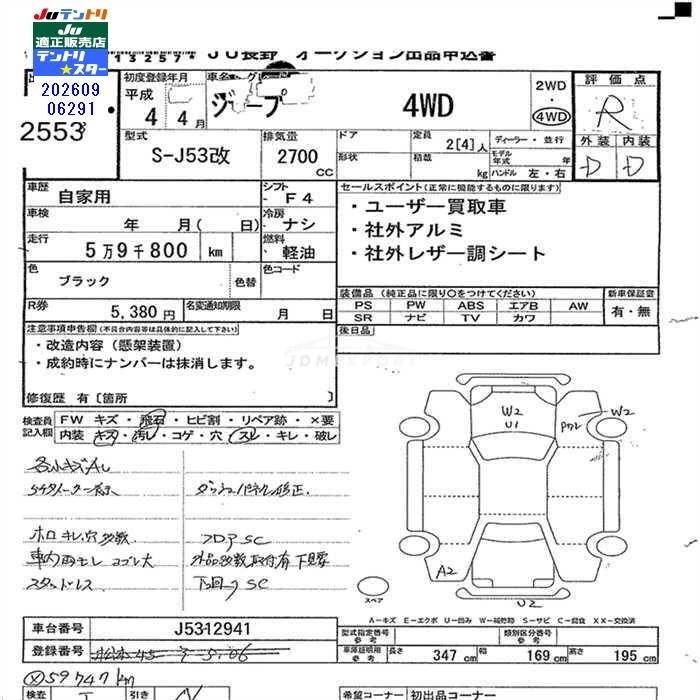 JUテントリ
JU
適正販売店
テントリ
★スター
202609
06291
13257*
JU長野 オークション出品申込書
2553
初度登録年月
平成
4年4月
車名
ジープ
4WD
2WD
4WD
評価点
R
外装 内装
D D
型式
S-J53改
排気量
2700
CC
ドア
形状
定員
2[4]人
積載
kg
ディーラー・並行
モデル年式 年
ハンドル 左・右
車歴
自家用
シフト
F4
車検
年 月( 日)
冷房
ナシ
走行
5万9千800 km
燃料
軽油
色
ブラック
色替
色コード
R券
5,380円
名変通知期限
月 日
セールスポイント(正常に機能するものに限ります)
・ユーザー買取車
・社外アルミ
・社外レザー調シート
装備品(純正品に限り○をつけてください)
PS PW ABS エアB AW
SR ナビ TV カワ
新車保証書
有・無
後日品
注意事項申告欄(不具合内容等は具体的に記入して下さい)
・改造内容(懸架装置)
・成約時にナンバーは抹消します。
修復歴 有〔箇所 〕
JDM EXPORT
検査員
記入欄
FW キズ・飛石・ヒビ割・リペア跡・×要
内装 キズ・汚レ・コゲ・穴・スレ・キレ・破レ
各小キズAし
ダッシュパネル修正.
ホロキレ穴多数
フロアSC
車内雨モレ ヨゴレ大
外品多数取付有 下見要
スタッドレス
下回りSC
W2
U1
W2
A2
U2
スペア
A-キズ E-エクボ U-凹み W-補修跡 S-サビ C-腐食 XX-交換済
車台番号
J5312941
登録番号
松本45
型式指定番号
参考
類別区分番号
参考
車庫証明用
参考
長さ 347 cm
幅 169 cm
高さ 195 cm
59747km
検査
引き
希望コーナー
初出品コーナー